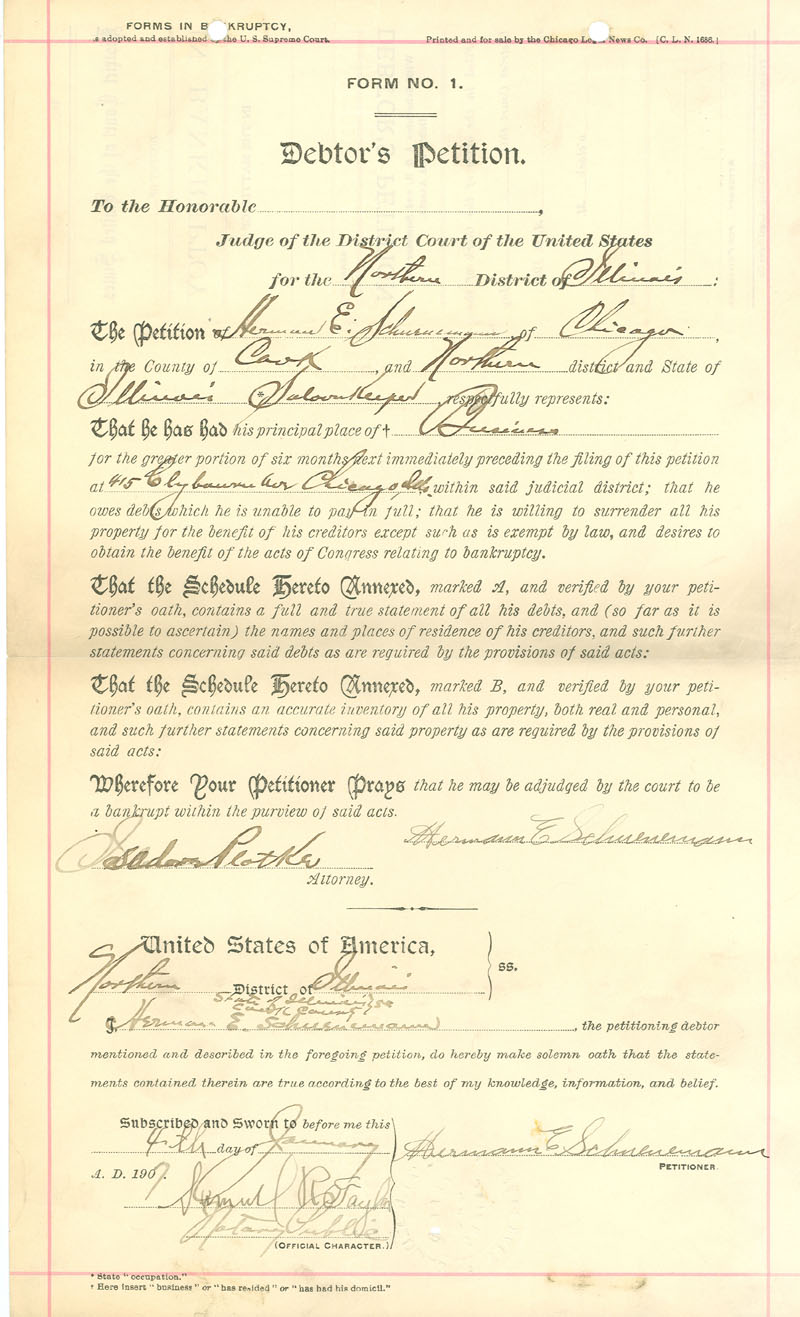 FORMS IN B KRUPTCY,
as adopted and established by the U. S. Supreme Court.
Printed and for sale by the Chicago Le News Co. [C. L. N. 1686.]
FORM NO. 1.
Debtor's Petition.
To the Honorable ,
Judge of the District Court of the United States
for the Northern District of Illinois :
The Petition of Herman E. Schuenemann of Chicago ,
in the County of Cook , and Northern district and State of
Illinois * Saloonkeeper respectfully represents:
That he has had his principal place of † Business
for the greater portion of six months next immediately preceding the filing of this petition
at 415 Clybourn Av Chicago Ill. within said judicial district; that he
owes debts which he is unable to pay in full; that he is willing to surrender all his
property for the benefit of his creditors except such as is exempt by law, and desires to
obtain the benefit of the acts of Congress relating to bankruptcy.
That the Schedule Hereto Annexed, marked A, and verified by your peti-
tioner's oath, contains a full and true statement of all his debts, and (so far as it is
possible to ascertain) the names and places of residence of his creditors, and such further
statements concerning said debts as are required by the provisions of said acts:
That the Schedule Hereto Annexed, marked B, and verified by your peti-
tioner's oath, contains an accurate inventory of all his property, both real and personal,
and such further statements concerning said property as are required by the provisions of
said acts:
Wherefore Your Petitioner Prays that he may be adjudged by the court to be
a bankrupt within the purview of said acts.
Hermann E Schuenemann
Isedore Plotke
Attorney.
United States of America,
ss.
Northern District of Illinois
State of Illinois ss
Cook County
I, Herman E. Schuenemann , the petitioning debtor
mentioned and described in the foregoing petition, do hereby make solemn oath that the state-
ments contained therein are true according to the best of my knowledge, information, and belief.
Subscribed and Sworn to before me this
4th day of January
Hermann E Schuenemann
PETITIONER.
A. D. 1907
Samuel R Taylor
Notary Public
(OFFICIAL CHARACTER.)
* State "occupation."
† Here insert "business" or "has resided" or "has had his domicil."